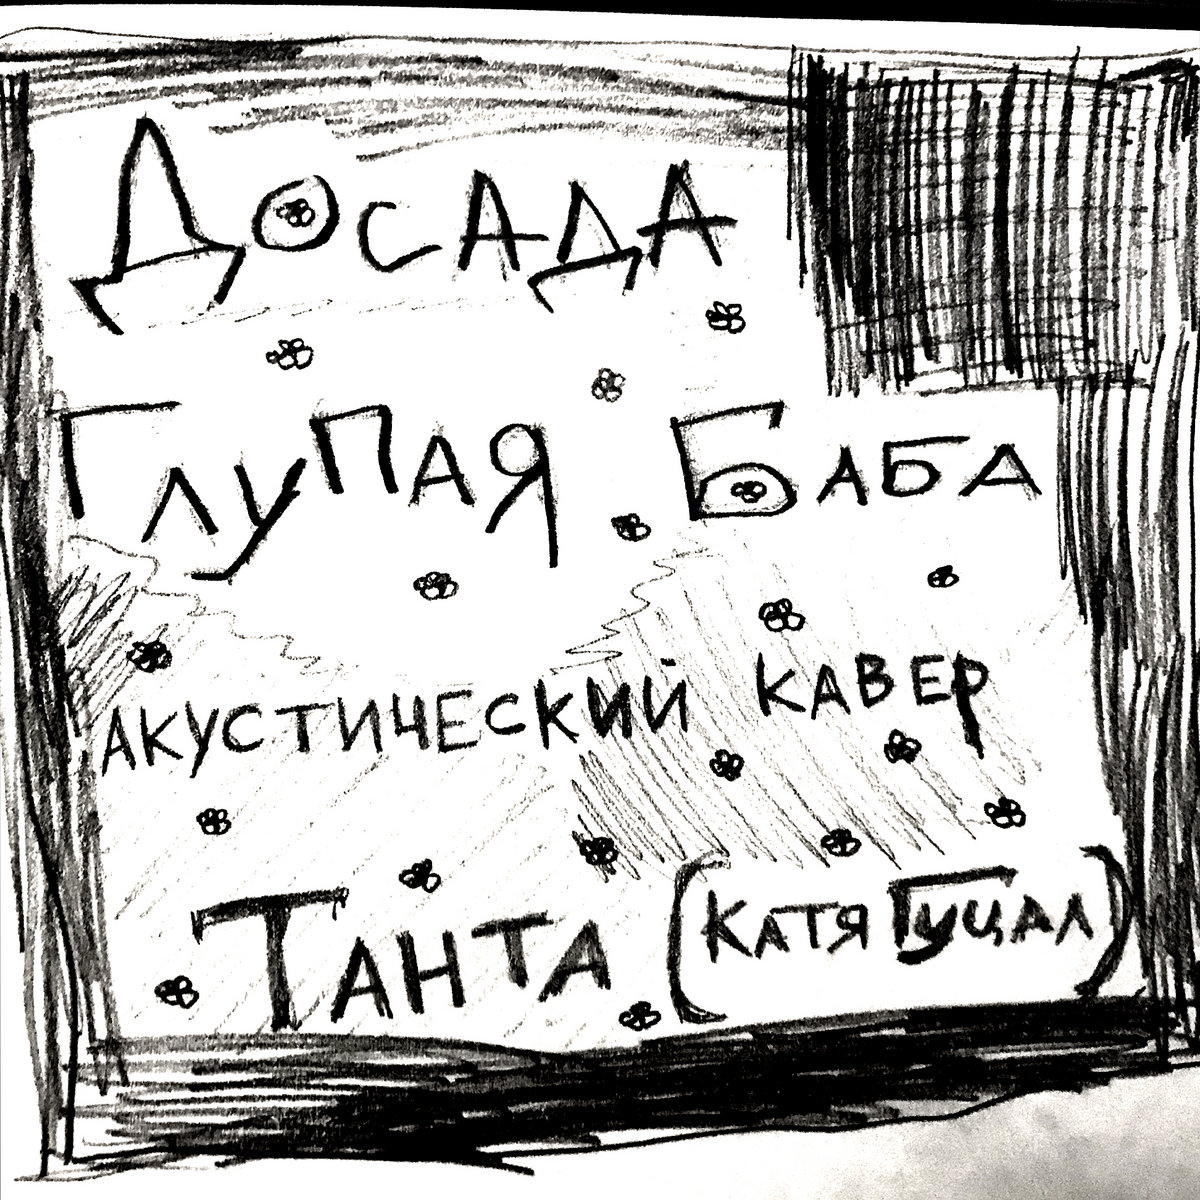 Досада
Глупая Баба
акустический кавер
Танта (Катя Гуцал)